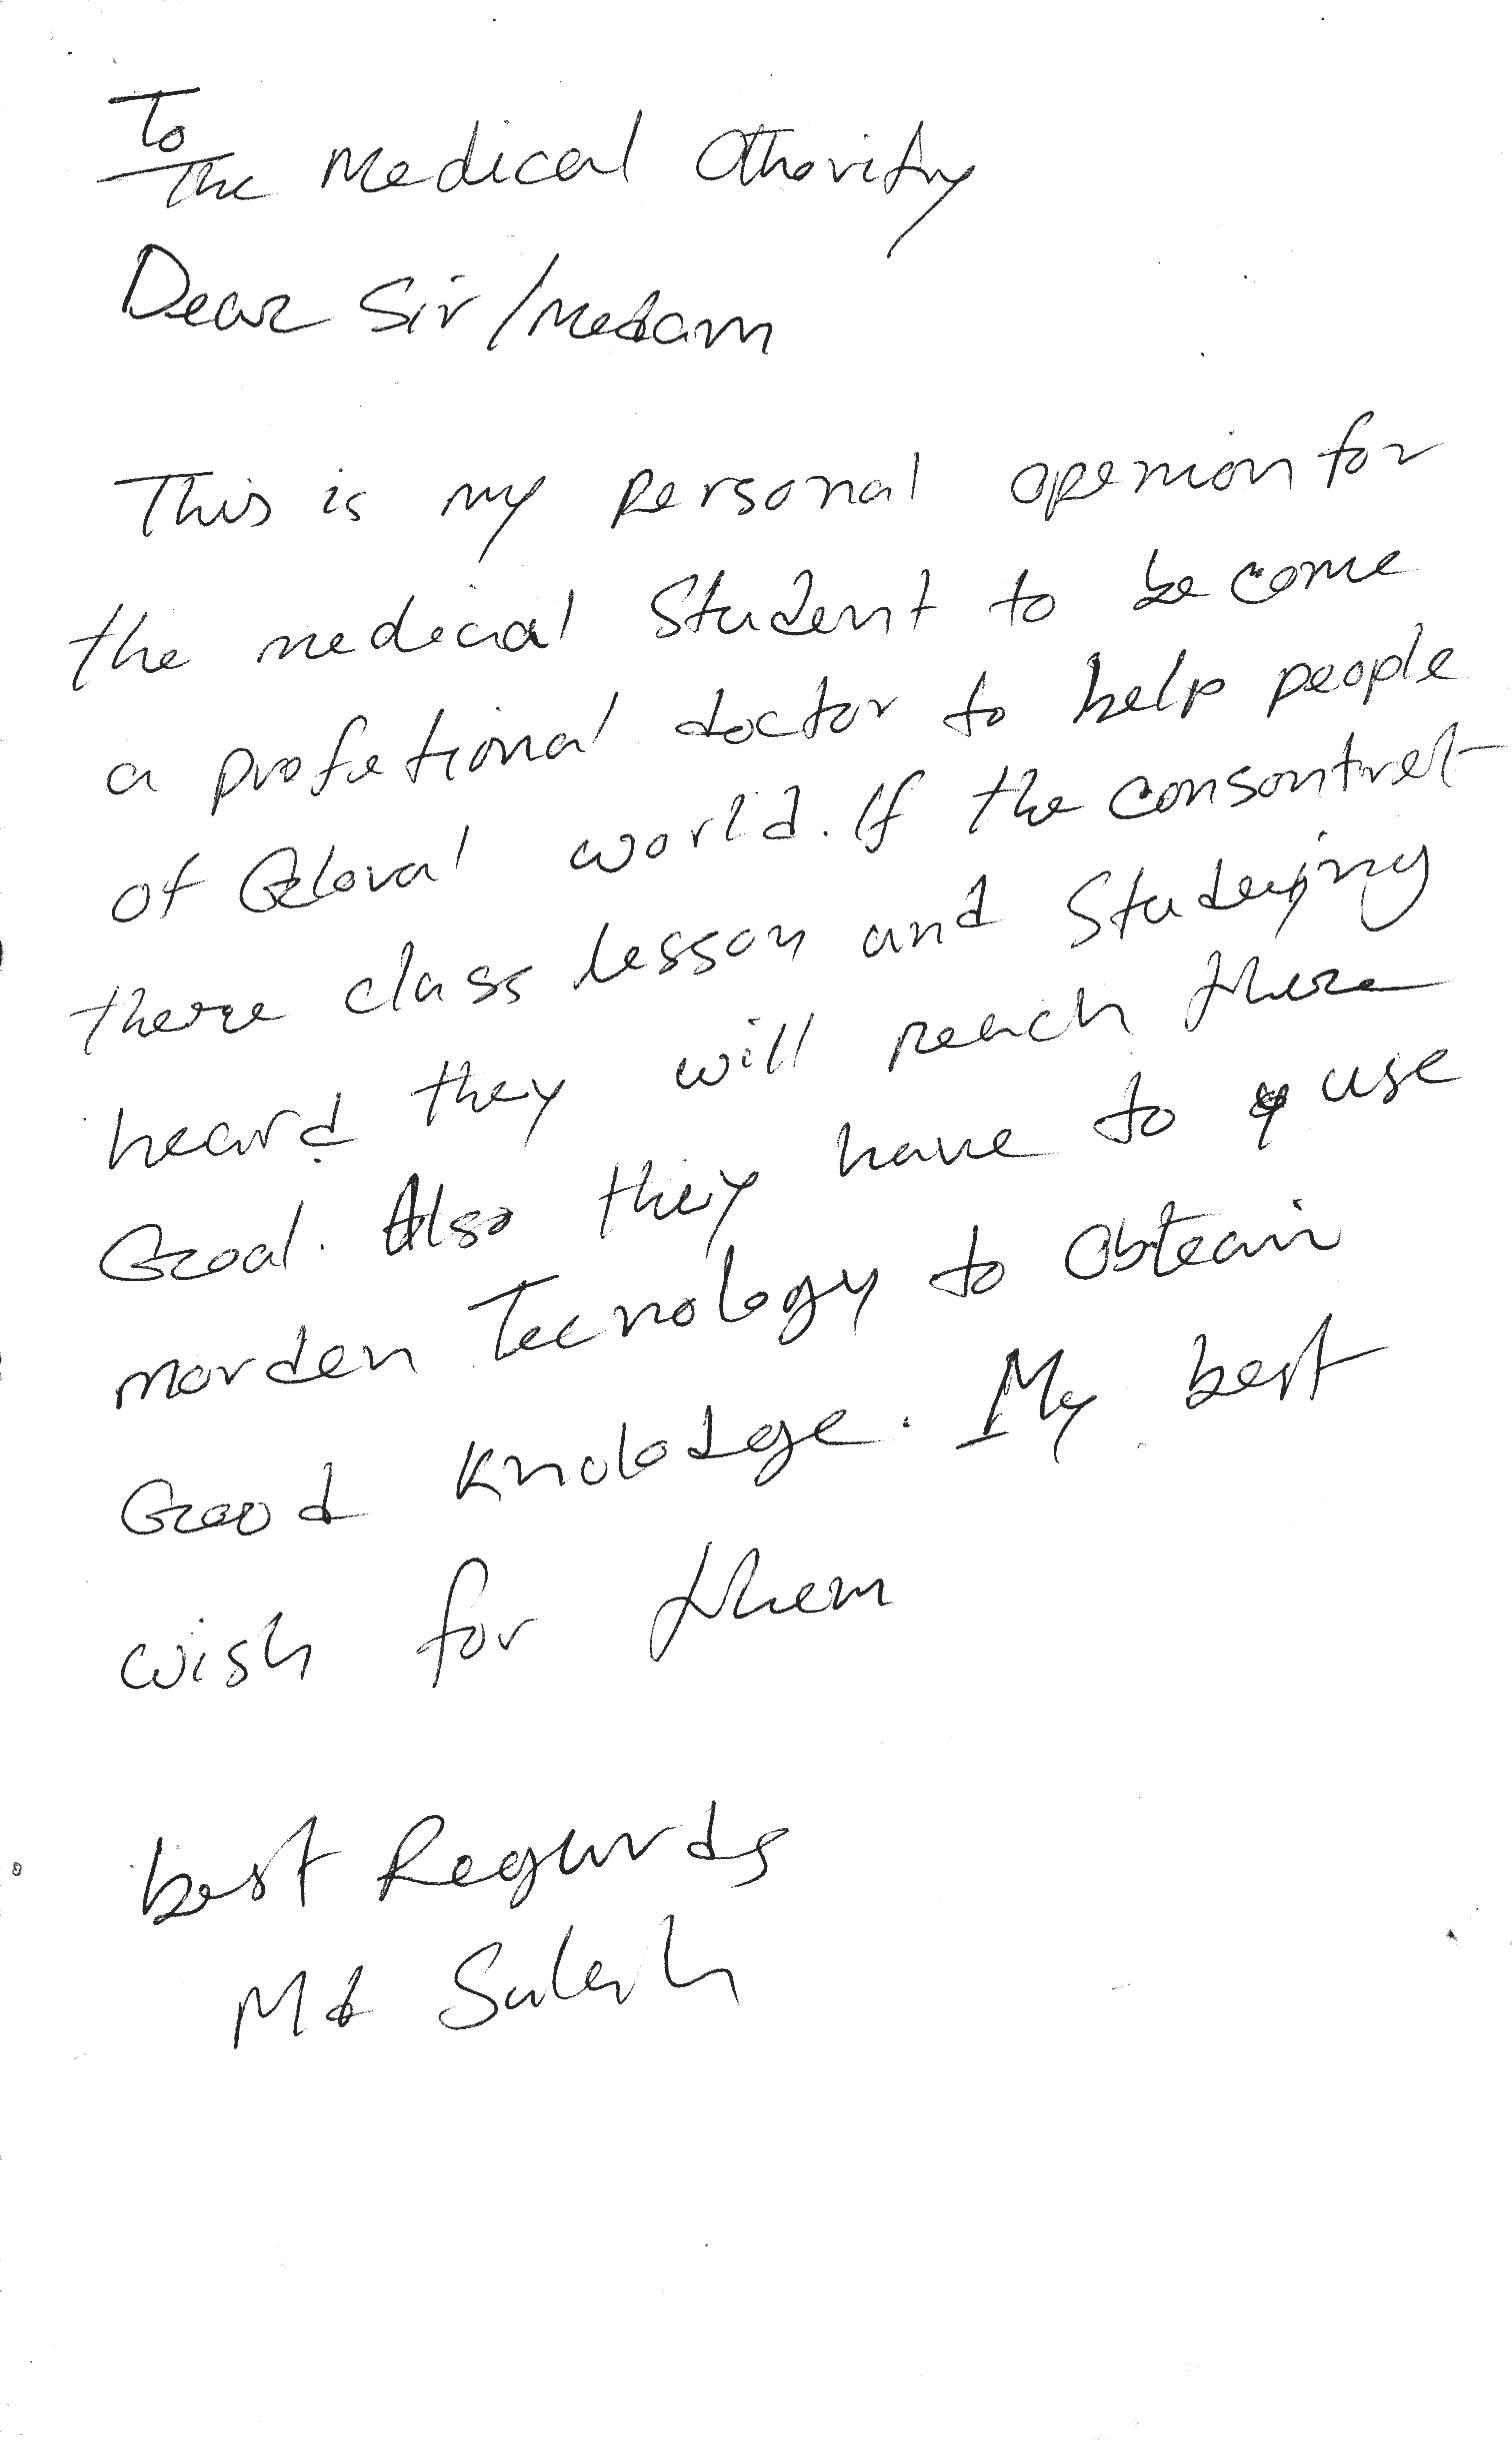 To
The Medical Othority
Dear Sir/Medam
This is my personal openion for
the medical Student to become
a profetional doctor to help people
of Gloval world. If the consontret
there class lesson and Studeying
heard they will reach there
Goal. Also they have to use
morden Tecnology to Obtain
Good Knoledge. My best
wish for them
best Regards
Md Saleh